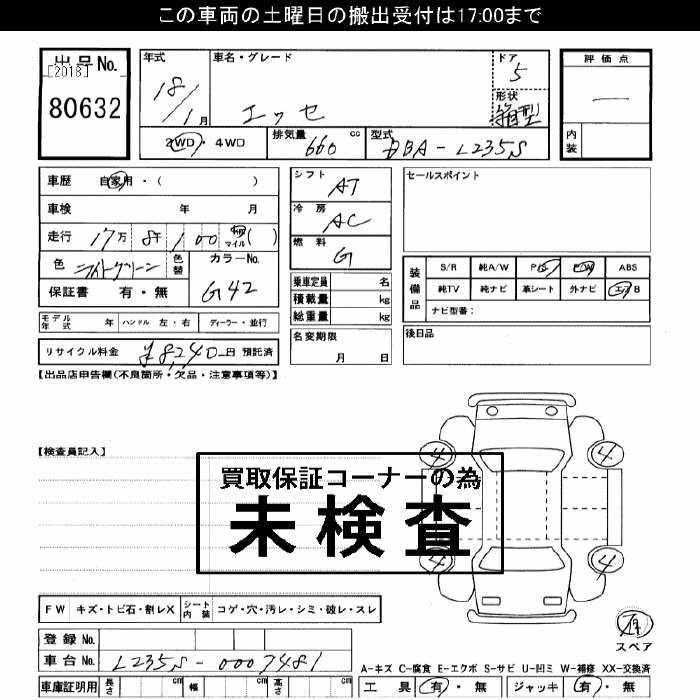 この車両の土曜日の搬出受付は17:00まで
出品No.
[2018]
80632
年式
18/1月
車名・グレード
エッセ
ドア
5
形状
箱型
評価点
―
内装
2WD・4WD
排気量
660
cc
型式
DBA-L235S
車歴 自家用・( )
車検 年 月
走行 17万 8千 100 km マイル ( )
色 ライトグリーン
色替
カラーNo.
G42
保証書 有・無
シフト
AT
冷房
AC
燃料
G
乗車定員 名
積載量 kg
総重量 kg
名変期限
月 日
セールスポイント
装備品
S/R 純A/W P/S P/W ABS
純TV 純ナビ 革シート 外ナビ エアB
ナビ型番:
後日品
モデル年式 年 ハンドル 左・右 ディーラー・並行
リサイクル料金 ¥8,240-円 預託済
【出品店申告欄(不良箇所・欠品・注意事項等)】
【検査員記入】
買取保証コーナーの為
未検査
4
4
4
4
FW キズ・トビ石・割レX シート内装 コゲ・穴・汚レ・シミ・破レ・スレ
登録No.
車台No. L235S-0007481
有
スペア
A-キズ C-腐食 E-エクボ S-サビ U-凹ミ W-補修 XX-交換済
車庫証明用 長さ cm 幅 cm 高さ cm
工具 有・無 ジャッキ 有・無